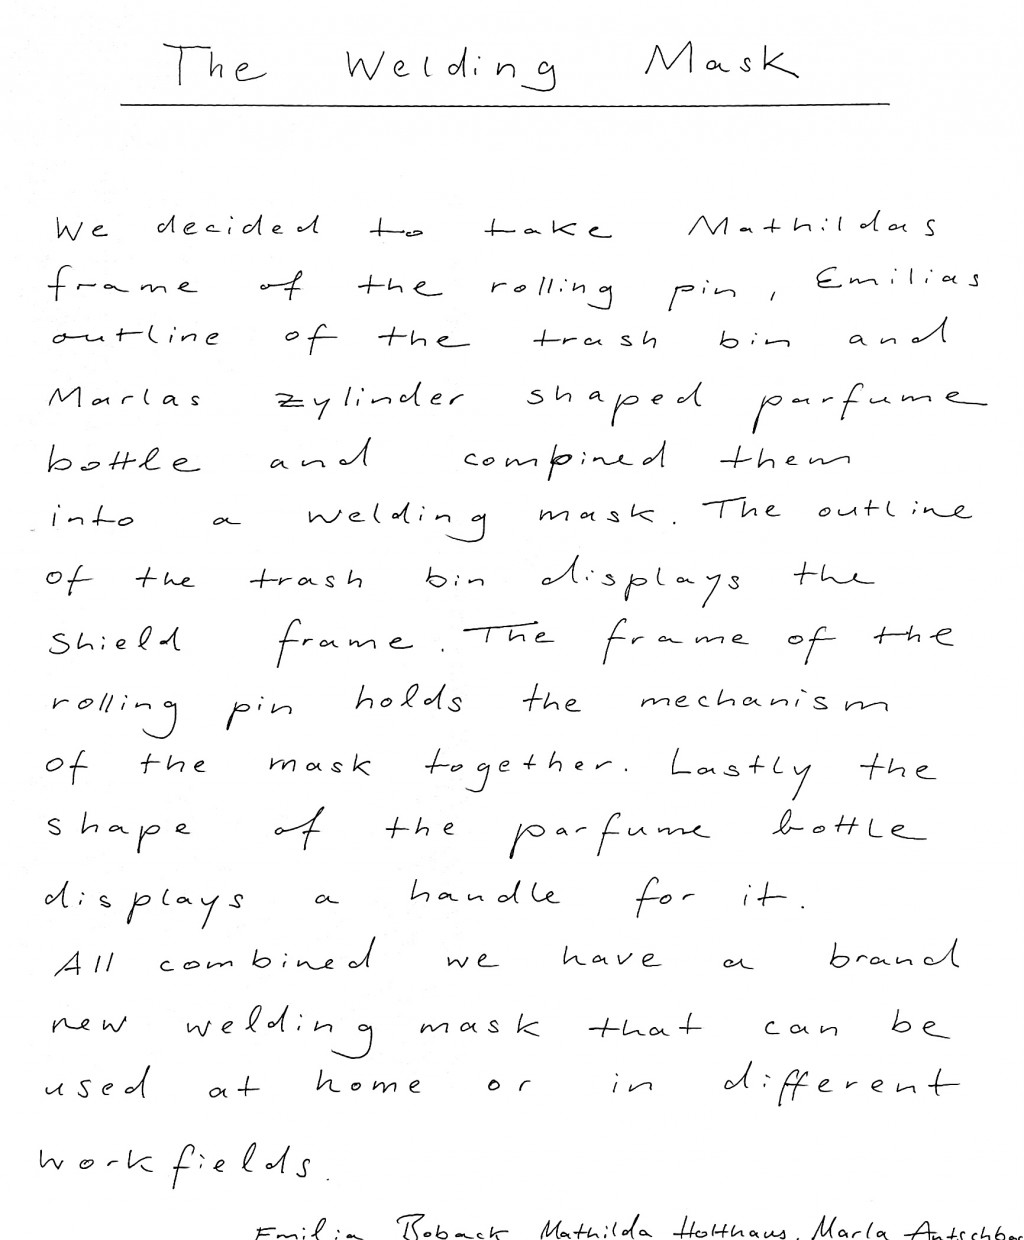 The Welding Mask
We decided to take Mathildas
frame of the rolling pin, Emilias
outline of the trash bin and
Marlas zylinder shaped parfume
bottle and compined them
into a welding mask. The outline
of the trash bin displays the
shield frame. The frame of the
rolling pin holds the mechanism
of the mask together. Lastly the
shape of the parfume bottle
displays a handle for it.
All combined we have a brand
new welding mask that can be
used at home or in different
workfields.
Emilia Boback Mathilda Holthaus, Marla